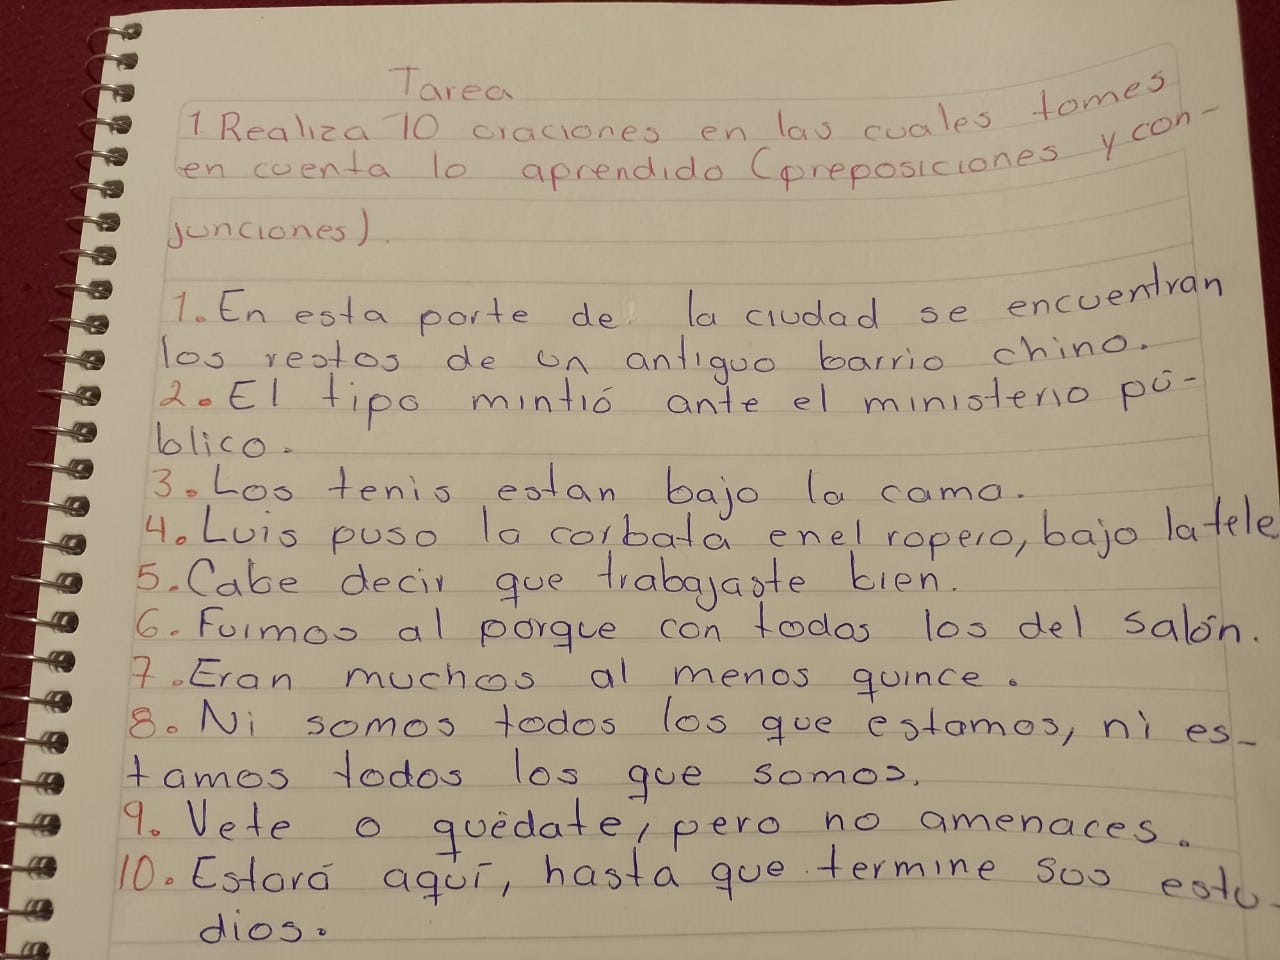 Tarea
1. Realiza 10 oraciones en las cuales tomes
en cuenta lo aprendido (preposiciones y con-
junciones).
1. En esta parte de la ciudad se encuentran
los restos de un antiguo barrio chino.
2. El tipo mintió ante el ministerio pú-
blico.
3. Los tenis estan bajo la cama.
4. Luis puso la corbata enel ropero, bajo la tele
5. Cabe decir que trabajaste bien.
6. Fuimos al porque con todos los del salón.
7. Eran muchos al menos quince.
8. Ni somos todos los que estamos, ni es-
tamos todos los que somos.
9. Vete o quédate, pero no amenaces.
10. Estará aquí, hasta que termine sus estu-
dios.